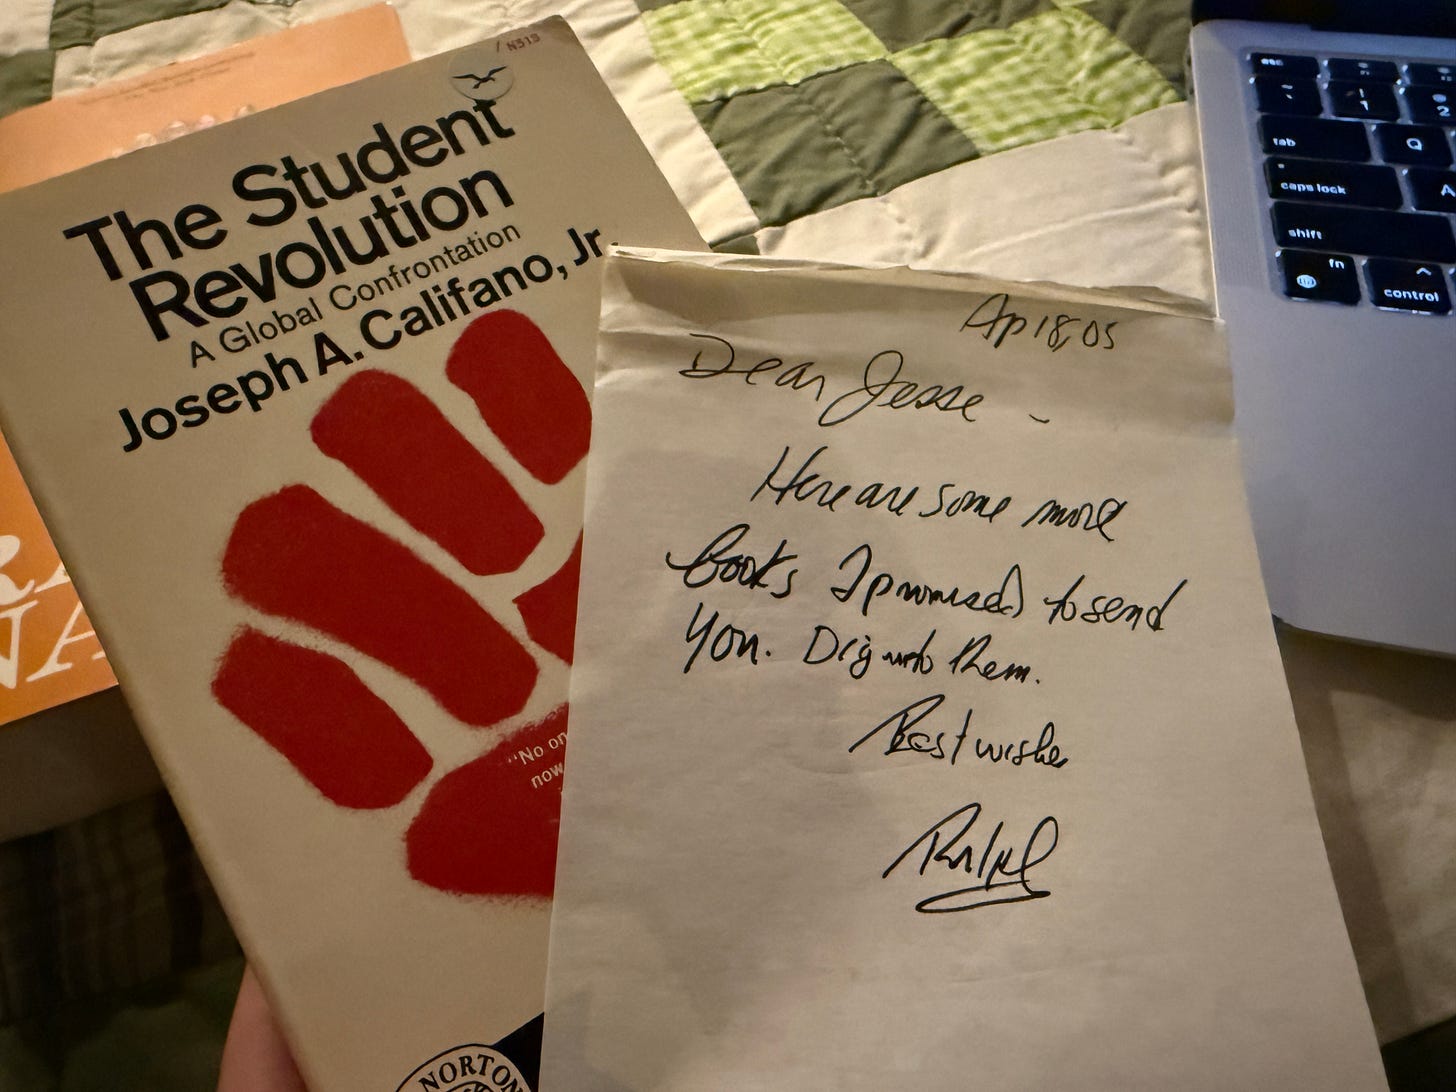 N313
The Student
Revolution
A Global Confrontation
Joseph A. Califano, Jr
"No on
now
NORTON
Ap 18, 05
Dear Jesse -
Here are some more
books I promised to send
you. Dig into them.
Best wishes
Ralph
esc
!
1
2
tab
Q
caps lock
A
shift
fn
control